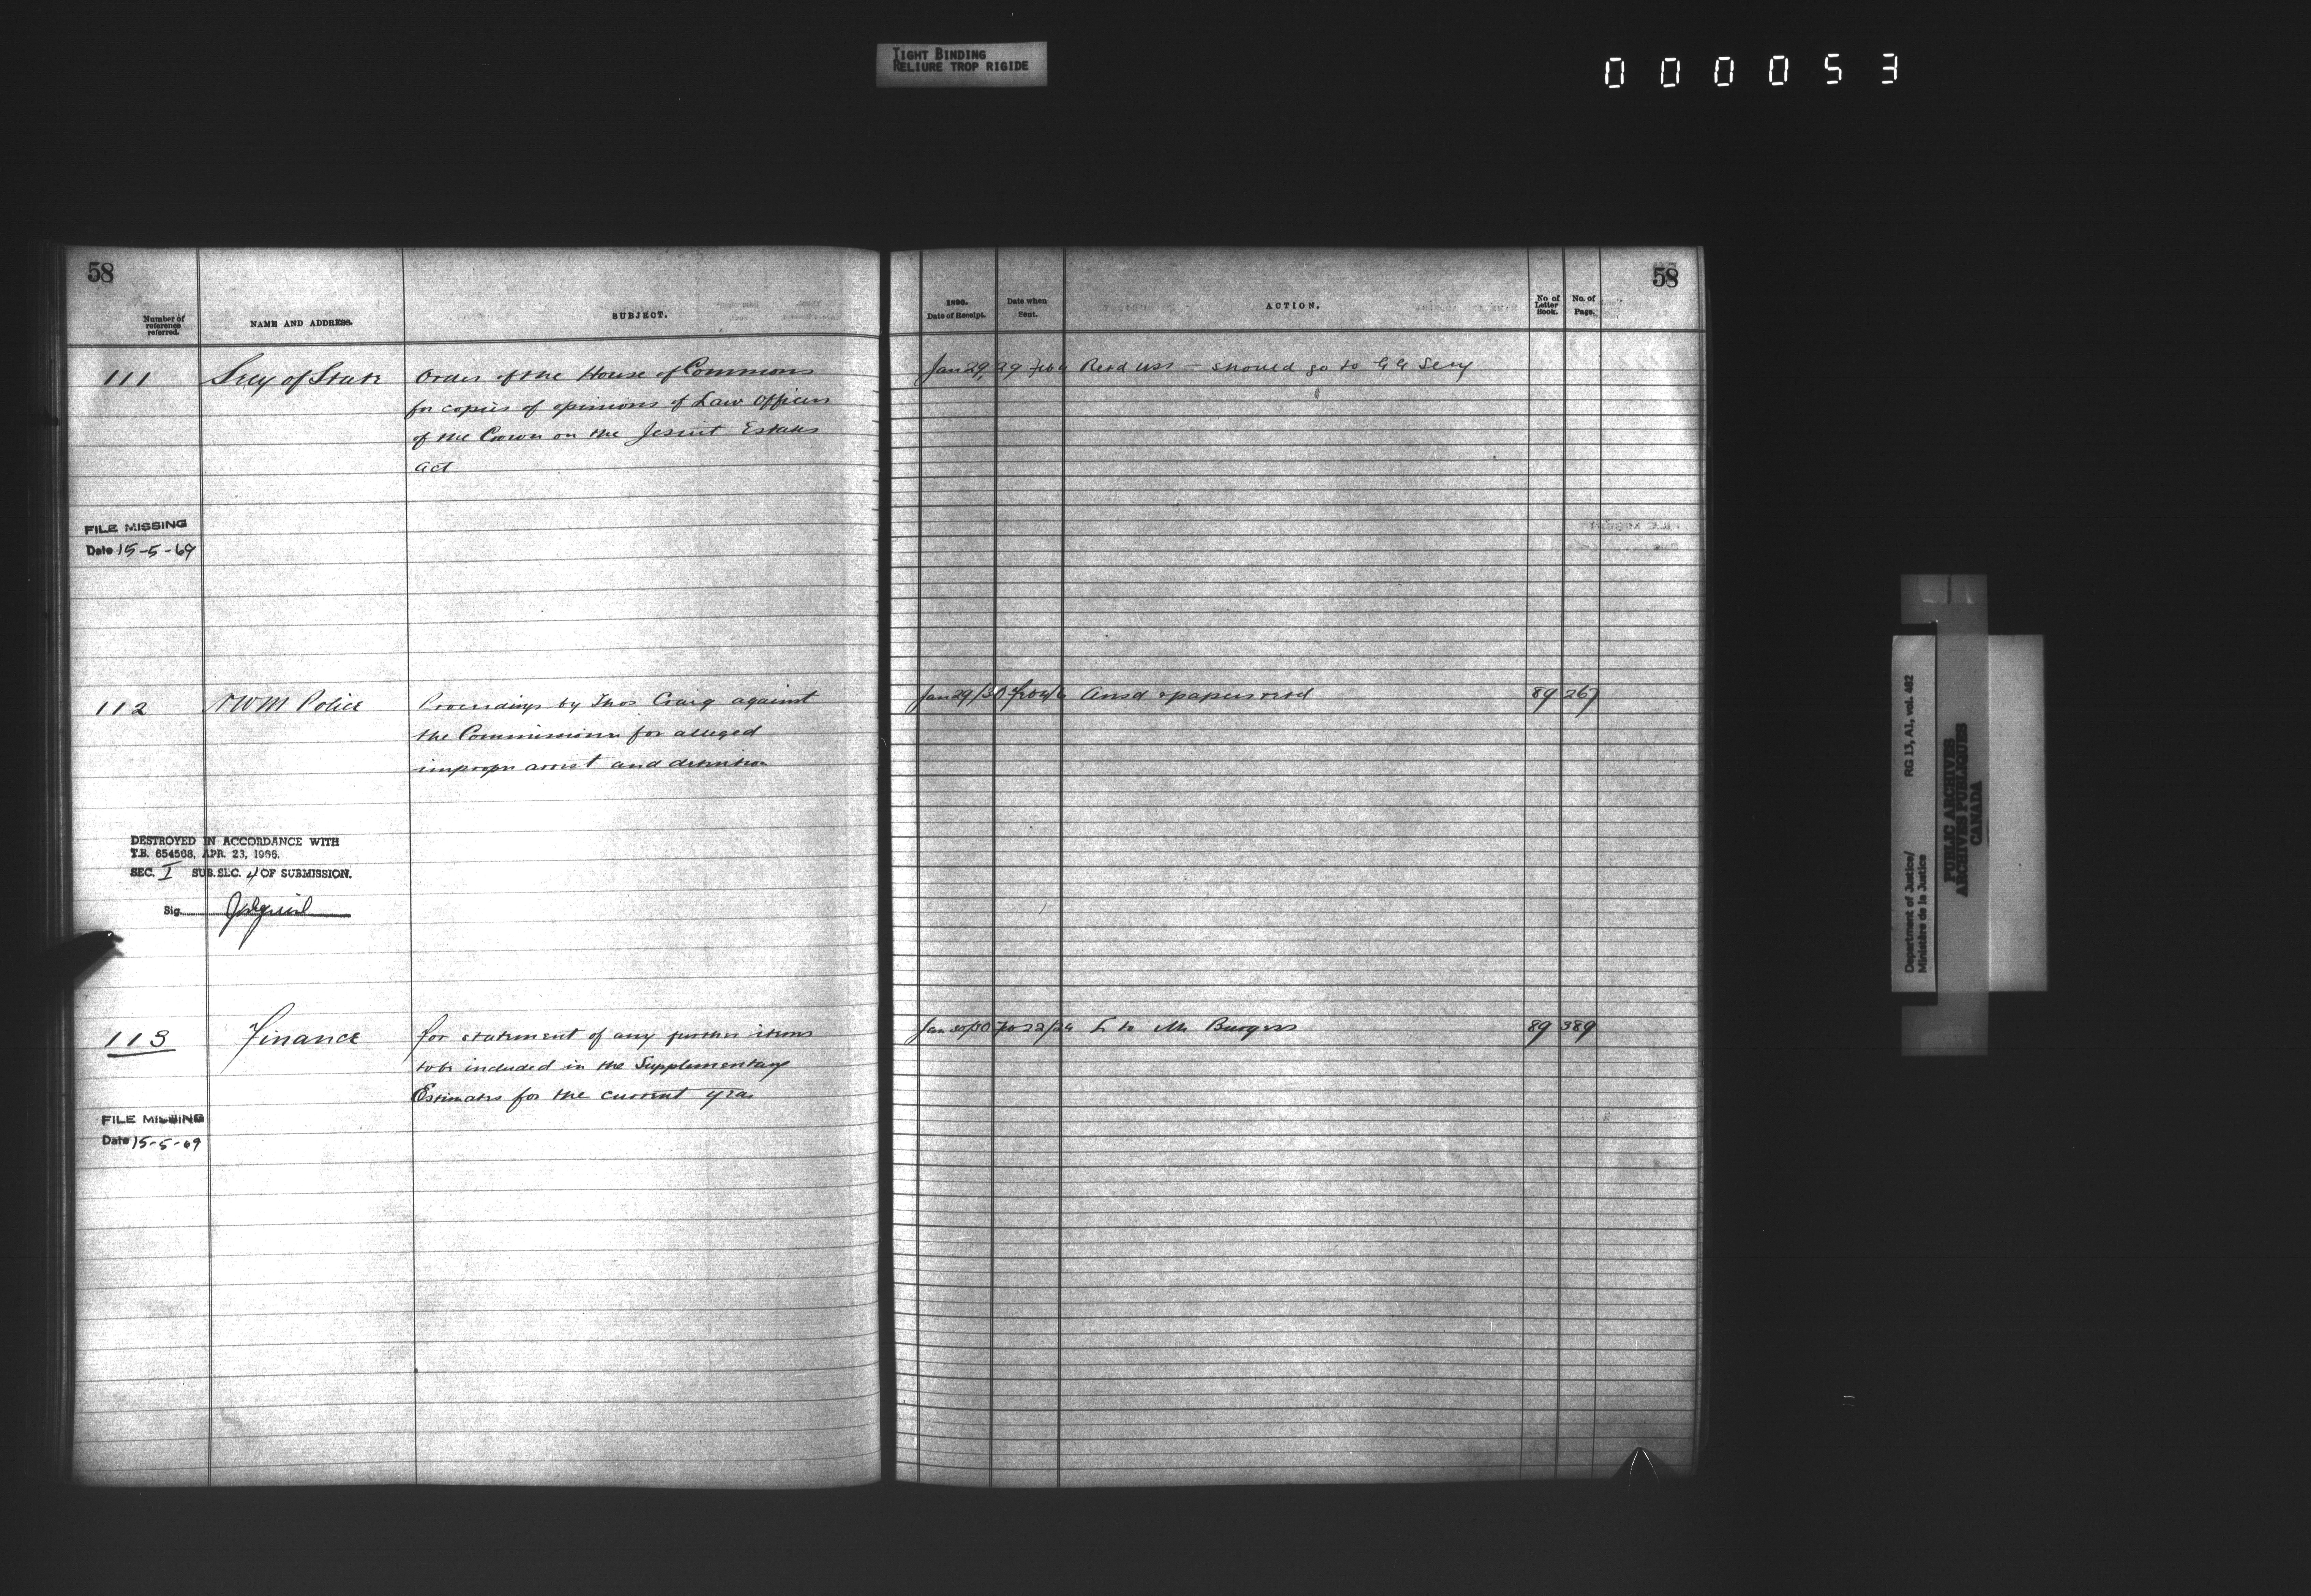 TIGHT BINDING
RELIURE TROP RIGIDE
000053
58
Number of reference referred.
NAME AND ADDRESS.
SUBJECT.
111 Secy of State Order of the House of Commons
for copies of opinions of Law Officers
of the Crown on the Jesuit Estates
Act
FILE MISSING
Date 15-5-69
112 NWM Police Proceedings by Thos Craig against
the Commissioner for alleged
improper arrest and detention
DESTROYED IN ACCORDANCE WITH
T.B. 654568, APR. 23, 1966.
SEC. I SUB. SEC. 4 OF SUBMISSION.
Sig.
113 Finance For statement of any further items
to be included in the Supplementary
Estimates for the current year
FILE MISSING
Date 15-5-69
58
1890.
Date of Receipt.
Date when Sent.
ACTION.
No of Letter Book.
No. of Page.
Jan 29, 29 Feb Retd USS - should go to GG Secy
Jan 29/30 Feb 4/6 Ansd & papers retd 89 267
Jan 30/30 Feb 22/24 L to Mr Burgess 89 389
Department of Justice/ RG 13, A1, vol. 462
Ministère de la Justice
PUBLIC ARCHIVES
ARCHIVES PUBLIQUES
CANADA